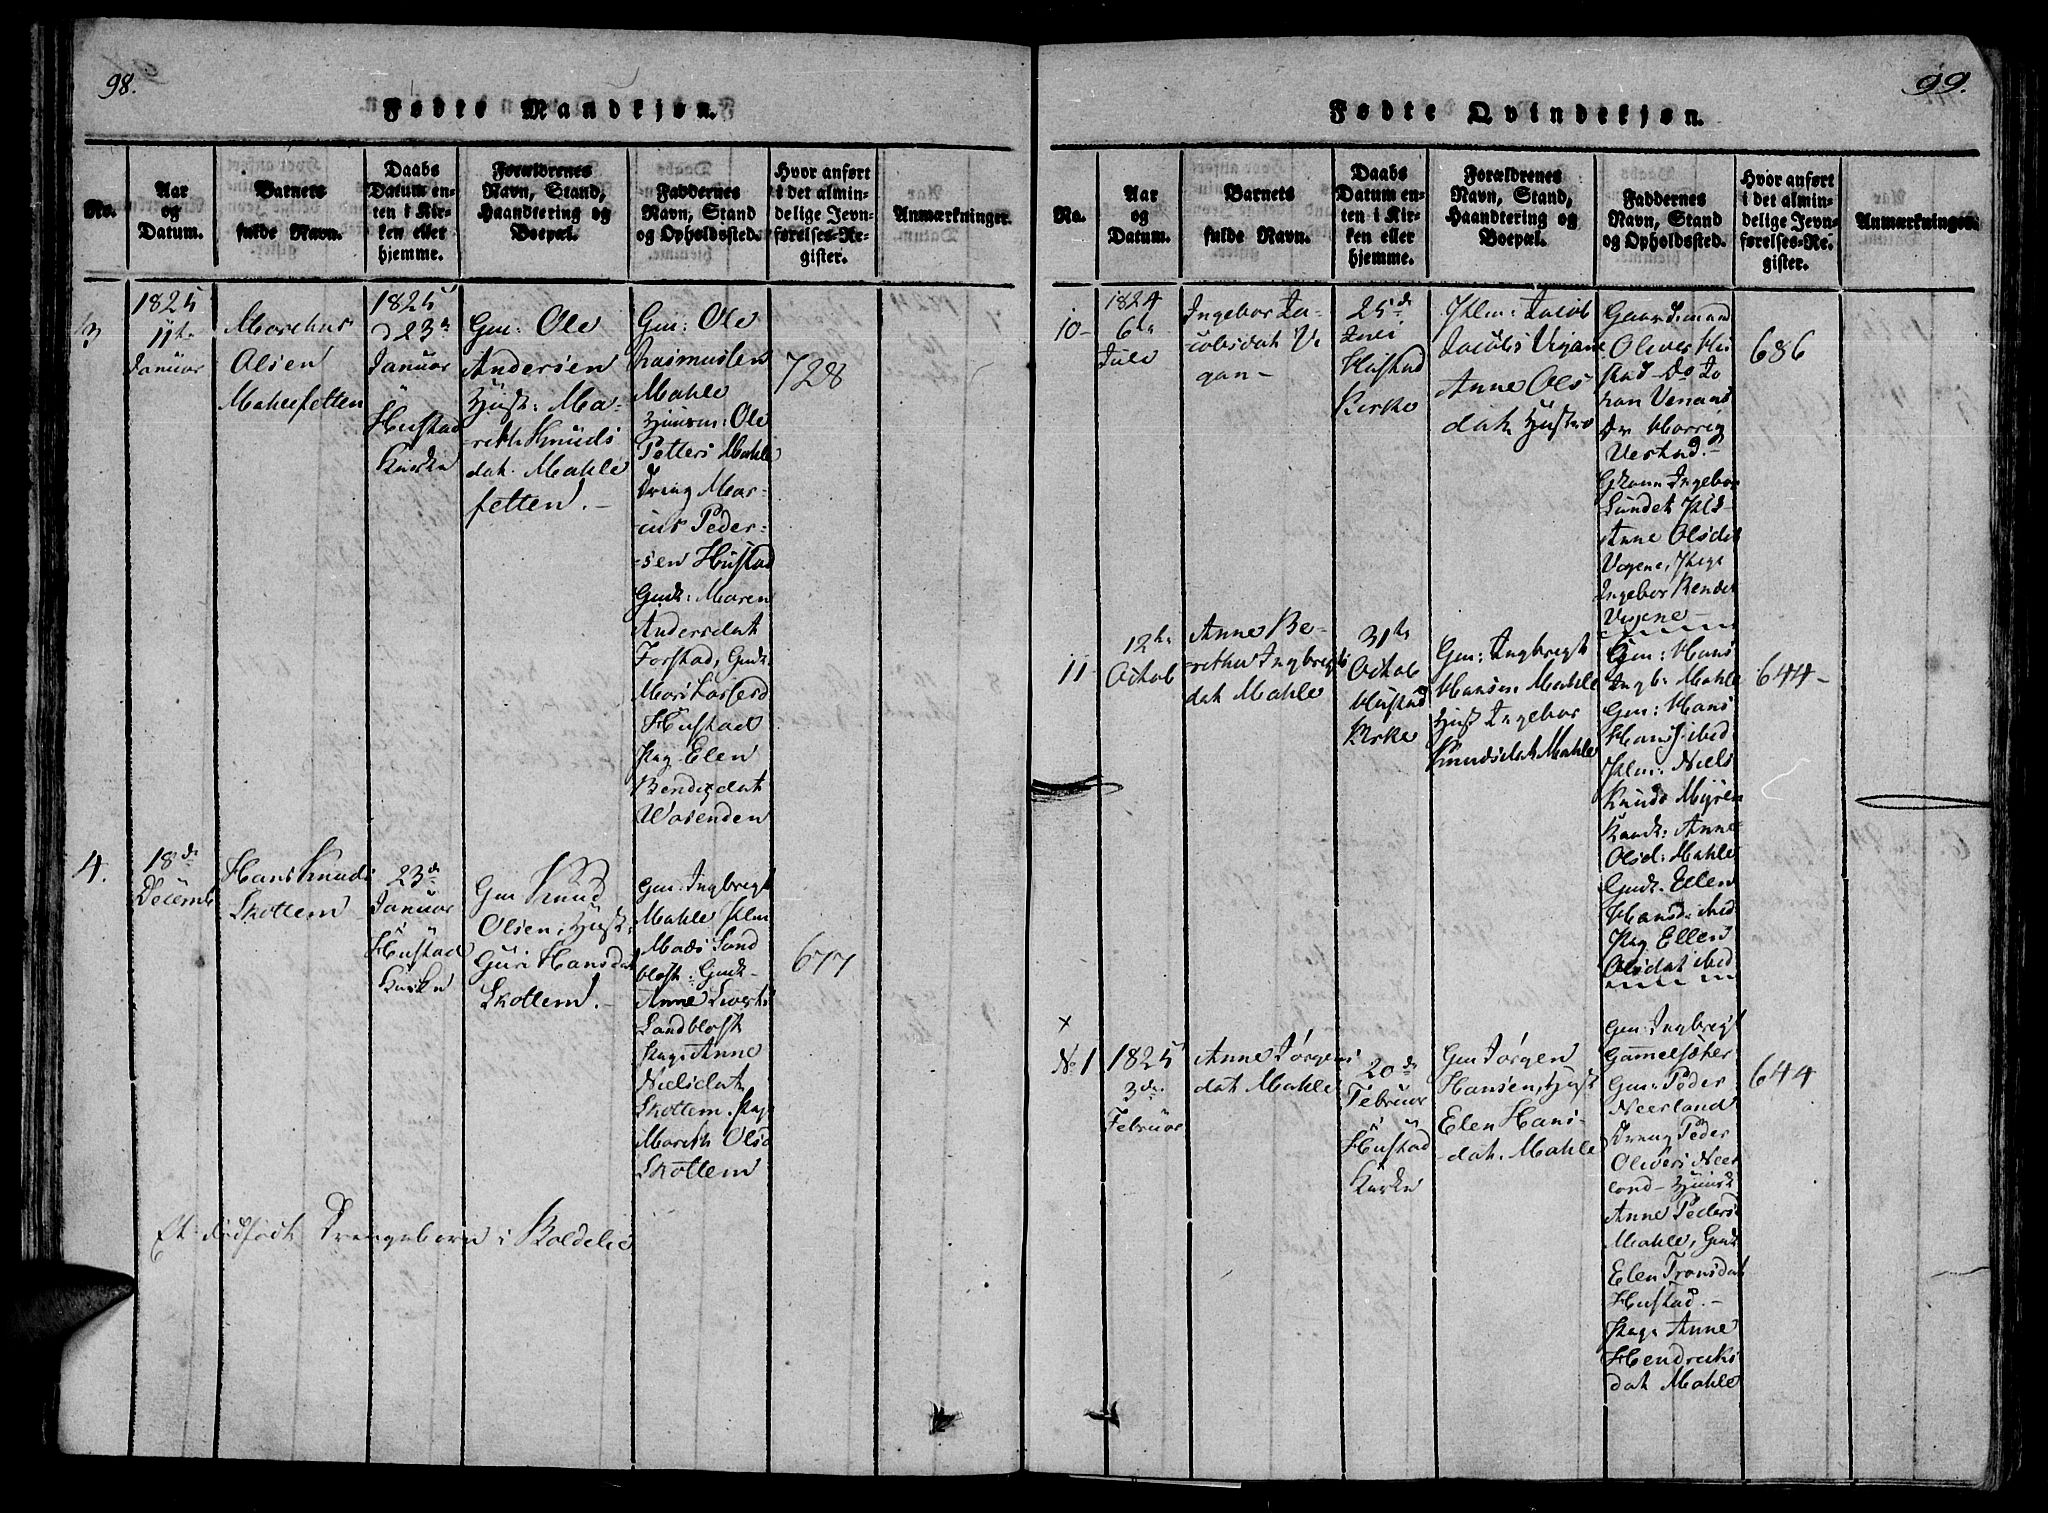 98.
Fødte Mandkjøn.
No.
Aar
og
Datum.
Barnets
fulde Navn.
Daabs
Datum en-
ten i Kir-
ken eller
hjemme.
Forældrenes
Navn, Stand,
Haandtering og
Boepæl.
Faddernes
Navn, Stand
og Opholdssted.
Hvor anført
i det almin-
delige Jevn-
førelses-Re-
gister.
Anmærkninger.
3
1825
11te
Januar
Olsen
Mahlefetten
1825
d 23de
Januar
i
Hustad
Kirke
Gm: Ole
Andersen
Hust: Ma-
rith Knuds
dat. Mahle
fetten. -
Gm: Ole
Rasmussen
Mahle
Huusm: Ole
Petters Mahle
Dreng Mar-
ius Peder-
-sen Hustad
Gmk: Maren
Andersdat
Forstad, Gmk.
Hustad
Pag. Elen
Bendixdat
Wasenden
728
4.
18de
Decemb
Hans Knuds
Skottem
23de
Januar
Hustad
Kirke
Gm Knud
Olsen, Hust:
Guri Hansdat
Skottem. -
Gm: Ingbrigt
Mahle
Mads Sand
blost: Gmk-
Anne Siverts
Sandblost
Pag: Anne
Nielsdat
Skottem. Pag
Marith Olsd
Skottem
677
Et dødfødt Drengebarn i
99.
Fødte Qvindekjøn.
No.
Aar
og
Datum.
Barnets
fulde Navn.
Daabs
Datum en-
ten i Kir-
ken eller
hjemme.
Forældrenes
Navn, Stand,
Haandtering og
Boepæl.
Faddernes
Navn, Stand
og Opholdssted.
Hvor anført
i det almin-
delige Jevn-
førelses-Re-
gister.
Anmærkninger.
10-
1824
6te
Jule
Ingebor Ja-
cobsdat Vi
gan-
25de
Julei
Hustad
Kirke
Jacob
Jacobs Vigane
Anne Ols
dat Hustro
Gaardmand
Oliver Hu
stad - Do Jo
han Venaas
Dr
Vestad. -
Ingebor
Sundet
Anne Olsdat
Vegene,
Ingebor
Vigene -
686
11
12te
Octob
Anne Be-
rithe Ingbrigts
dat Mahle
31te
Octob
Hustad
Kirke
Gm: Ingbrigt
Hansen Mahle
Hust Ingebor
Knudsdat Mahle
Gm: Hans
Ingb: Mahle
Gm: Hans
Hans: ibid
Niels
Knuds Myren
Anne
Olsd: Mahle
Gmk. Ellen
Hansd: ibid
Pag Ellen
Olsdat ibid
644-
x
No 1
1825
3de.
Februar
Anne Jørgens
dat Mahle
20de
Februar
Hustad
Kirke
Gm Jørgen
Hansen, Hust
Elen Hans-
-dat. Mahle
Gm: Ingbrigt
Gammelsæter
Gm: Peder
Neerland
Dreng Peder
Olivers Neer
land -
Anne Peders
Mahle, Gmk
Elen Tronsdat
Hustad. -
Pag: Anne
Hendriks
dat Mahle
644